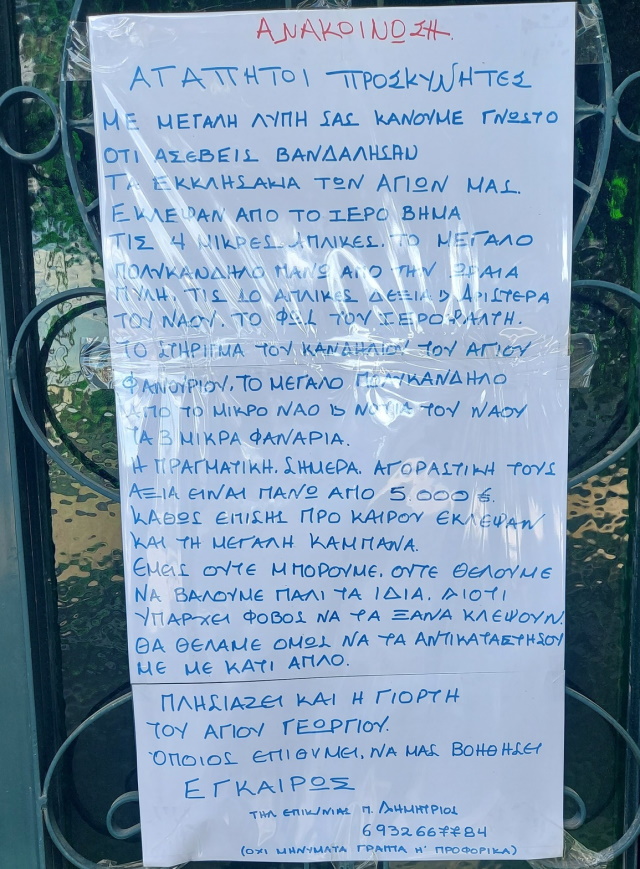 ΑΝΑΚΟΙΝΩΣΗ.
ΑΓΑΠΗΤΟΙ ΠΡΟΣΚΥΝΗΤΕΣ
ΜΕ ΜΕΓΑΛΗ ΛΥΠΗ ΣΑΣ ΚΑΝΟΥΜΕ ΓΝΩΣΤΟ
ΟΤΙ ΑΣΕΒΕΙΣ ΒΑΝΔΑΛΗΣΑΝ
ΤΑ ΕΚΚΛΗΣΑΚΙΑ ΤΩΝ ΑΓΙΩΝ ΜΑΣ.
ΕΚΛΕΨΑΝ ΑΠΟ ΤΟ ΙΕΡΟ ΒΗΜΑ
ΤΙΣ 4 ΜΙΚΡΕΣ ΑΠΛΙΚΕΣ. ΤΟ ΜΕΓΑΛΟ
ΠΟΛΥΚΑΝΔΗΛΟ ΠΑΝΩ ΑΠΟ ΤΗΝ ΩΡΑΙΑ
ΠΥΛΗ. ΤΙΣ 10 ΑΠΛΙΚΕΣ ΔΕΞΙΑ ΑΡΙΣΤΕΡΑ
ΤΟΥ ΝΑΟΥ. ΤΟ ΦΩΣ ΤΟΥ ΙΕΡΟΨΑΛΤΗ.
ΤΟ ΣΤΗΡΙΓΜΑ ΤΟΥ ΚΑΝΔΗΛΙΟΥ ΤΟΥ ΑΓΙΟΥ
ΦΑΝΟΥΡΙΟΥ. ΤΟ ΜΕΓΑΛΟ ΠΟΛΥΚΑΝΔΗΛΟ
ΑΠΟ ΤΟ ΜΙΚΡΟ ΝΑΟ ΝΟΤΙΑ ΤΟΥ ΝΑΟΥ
ΤΑ 3 ΜΙΚΡΑ ΦΑΝΑΡΙΑ.
Η ΠΡΑΓΜΑΤΙΚΗ. ΣΗΜΕΡΑ. ΑΓΟΡΑΣΤΙΚΗ ΤΟΥΣ
ΑΞΙΑ ΕΙΝΑΙ ΠΑΝΩ ΑΠΟ 5.000 €.
ΚΑΘΩΣ ΕΠΙΣΗΣ ΠΡΟ ΚΑΙΡΟΥ ΕΚΛΕΨΑΝ
ΚΑΙ ΤΗ ΜΕΓΑΛΗ ΚΑΜΠΑΝΑ.
ΕΜΕΙΣ ΟΥΤΕ ΜΠΟΡΟΥΜΕ. ΟΥΤΕ ΘΕΛΟΥΜΕ
ΝΑ ΒΑΛΟΥΜΕ ΠΑΛΙ ΤΑ ΙΔΙΑ. ΔΙΟΤΙ
ΥΠΑΡΧΕΙ ΦΟΒΟΣ ΝΑ ΤΑ ΞΑΝΑ ΚΛΕΨΟΥΝ.
ΘΑ ΘΕΛΑΜΕ ΟΜΩΣ ΝΑ ΤΑ ΑΝΤΙΚΑΤΑΣΤΗΣΟΥ
ΜΕ ΜΕ ΚΑΤΙ ΑΠΛΟ.
ΠΛΗΣΙΑΖΕΙ ΚΑΙ Η ΓΙΟΡΤΗ
ΤΟΥ ΑΓΙΟΥ ΓΕΩΡΓΙΟΥ.
ΟΠΟΙΟΣ ΕΠΙΘΥΜΕΙ. ΝΑ ΜΑΣ ΒΟΗΘΗΣΕΙ
ΕΓΚΑΙΡΩΣ
ΤΗΛ ΕΠΙΚ/ΝΙΑΣ Π. ΔΗΜΗΤΡΙΟΣ
6932667784
(ΟΧΙ ΜΗΝΥΜΑΤΑ ΓΡΑΠΤΑ Η' ΠΡΟΦΟΡΙΚΑ)